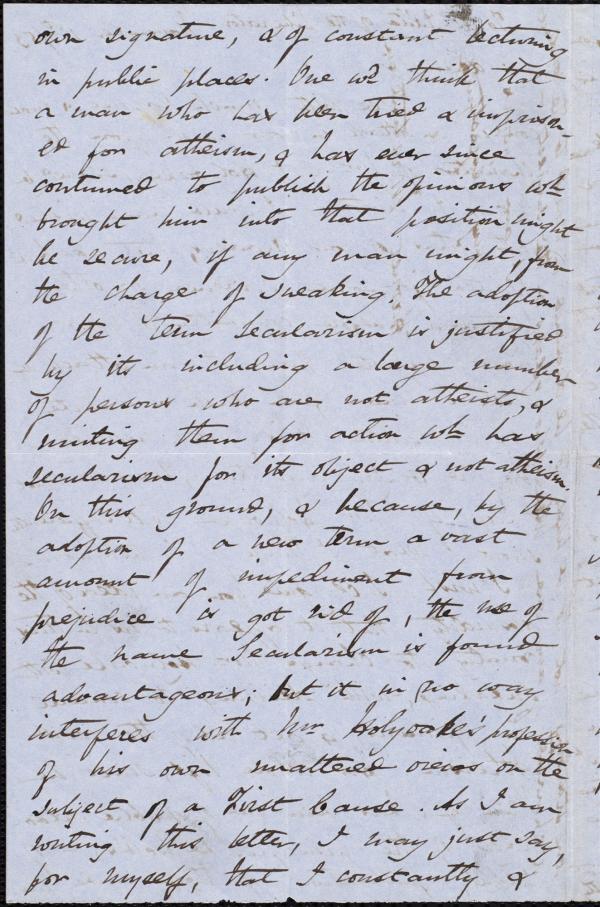 own signature, & of constant lecturing
in public places. One wd think that
a man who has been tried & imprison-
ed for atheism, & has ever since
continued to publish the opinions wh
brought him into that position might
be secure, if any man might, from
the charge of sneaking. The adoption
of the term Secularism is justified
by its including a large number
of persons who are not atheists, &
uniting them for action wh has
secularism for its object & not atheism.
On this ground, & because, by the
adoption of a new term a vast
amount of impediment from
prejudice is got rid of, the use of
the name Secularism is found
advantageous; but it in no way
interferes with Mr Holyoake's profession
of his own unaltered views on the
subject of a First Cause. As I am
writing this letter, I may just say,
for myself, that I constantly &